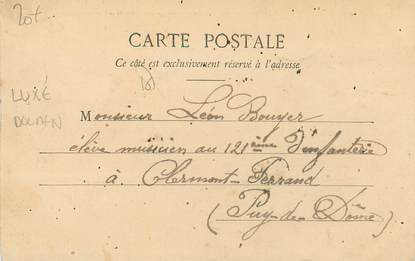 20f
CARTE POSTALE
Ce côté est exclusivement réservé à l'adresse
LUXÉ
DOLMEN
Monsieur Léon Bouyer
élève musicien au 121ème d'Infanterie
à Clermont-Ferrand
(Puy-de-Dôme)